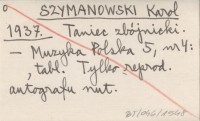 SZYMANOWSKI Karol
1937. Taniec zbójnicki.
– Muzyka Polska 5, nr 4:
, tabl. Tylko reprod.
autografu nut.